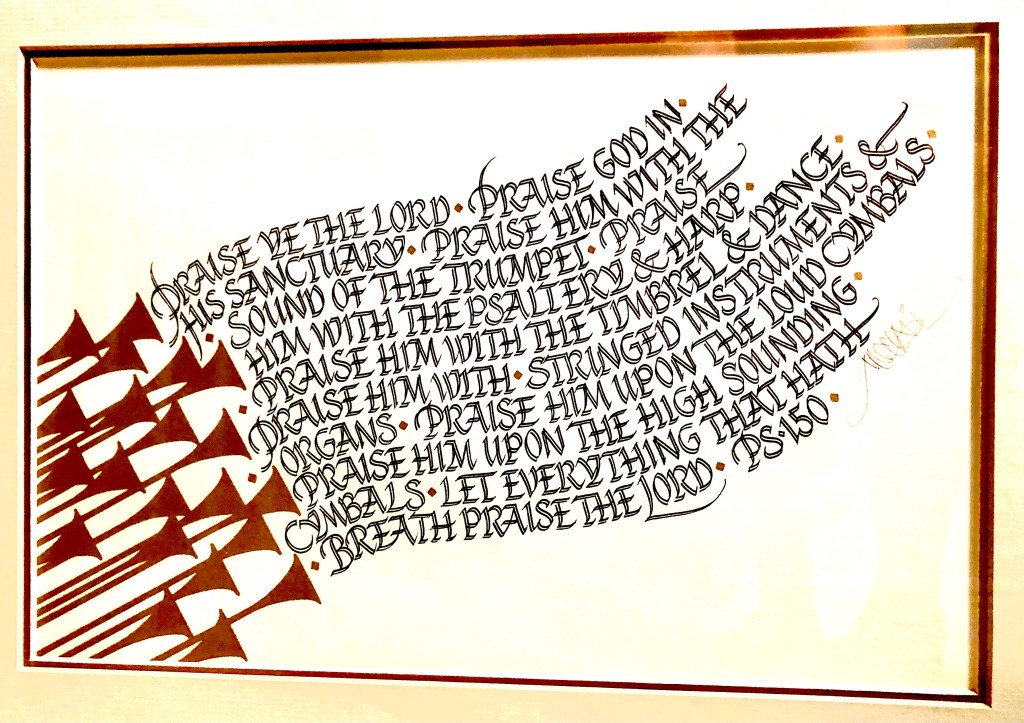 PRAISE YE THE LORD · PRAISE GOD IN ·
HIS SANCTUARY · PRAISE HIM WITH THE
· SOUND OF THE TRUMPET · PRAISE
HIM WITH THE PSALTERY & HARP ·
PRAISE HIM WITH THE TYMBREL & DANCE ·
· PRAISE HIM WITH · STRINGED INSTRUMENTS &
ORGANS · PRAISE HIM UPON THE LOUD CYMBALS ·
· PRAISE HIM UPON THE HIGH SOUNDING ·
CYMBALS · LET EVERYTHING THAT HATH
· BREATH PRAISE THE LORD · PS·150 ·